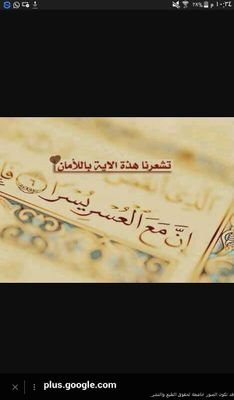 ١٠:٣٤ م ٢٨%
تشعرنا هذة الاية باللأمان
الذى
إِنَّ مَعَ الْعُسْرِ يُسْرًا ٦
plus.google.com
قد تكون الصور خاضعة لحقوق الطبع والنشر.